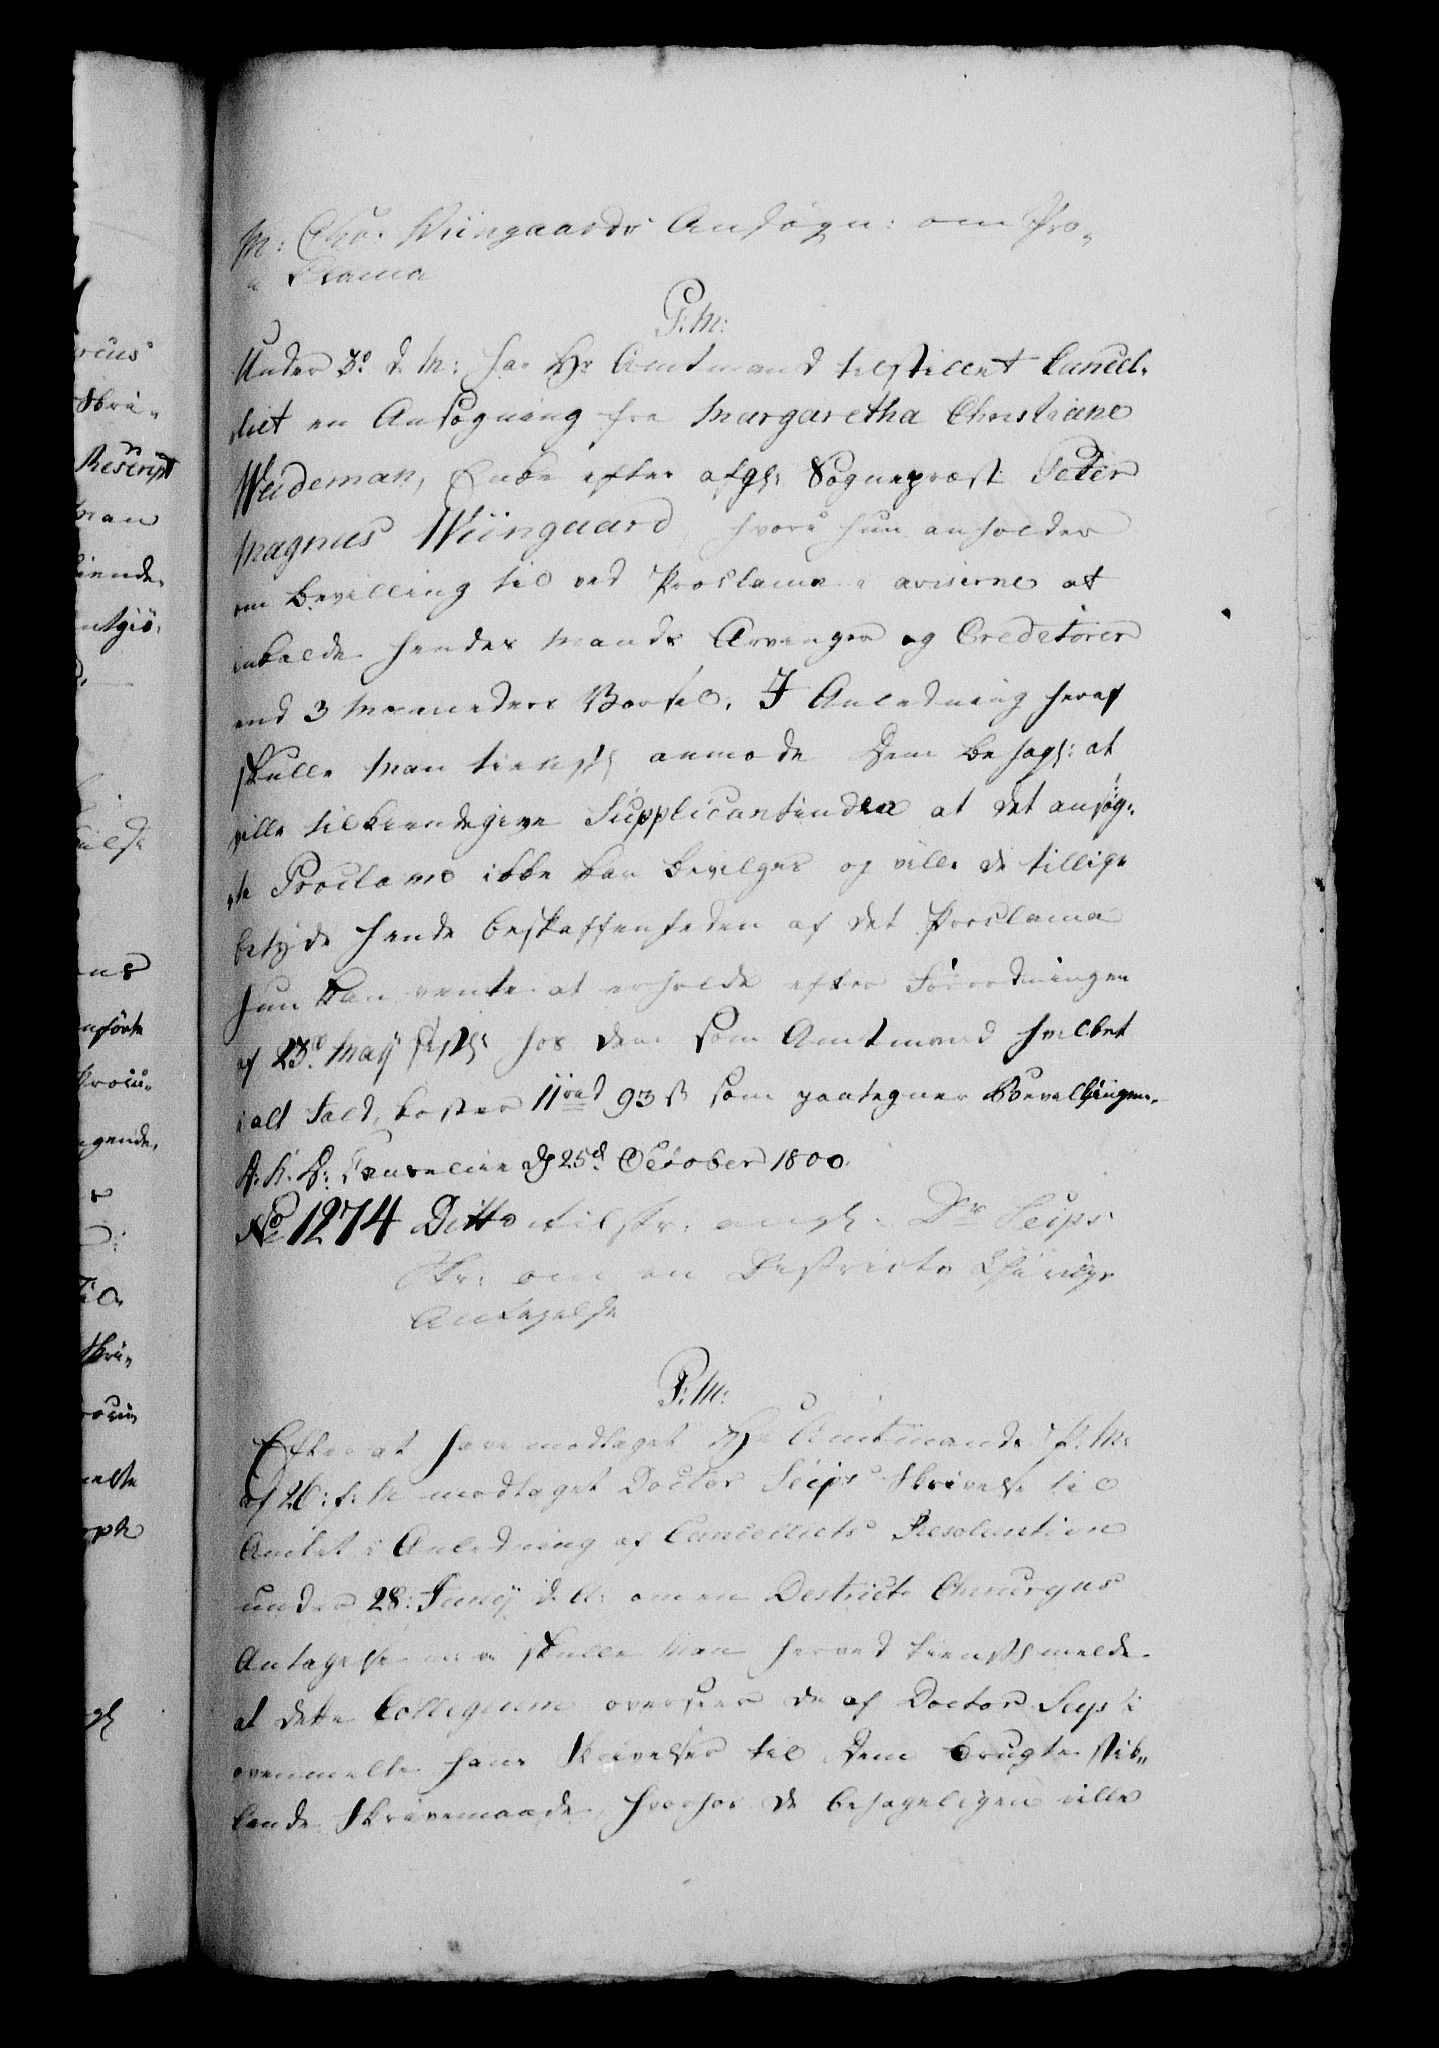 M: Chr. Wiingaards Ansøgn: om Pro„
clama
P: M:
Under 3d d. M: har Hr Amtmand tilstillet Cancel„
liet en Ansøgning fra Margaretha Christiane
Weideman, Enke efter afg: Sognepræst Peter
Magnus Wiingaard hvori hun anholder
om bevilling til ved Proclama i aviserne at
inkalde hendes Mands Arvinger og Creditorer
med 3 Maaneders Varsel. I Anledning heraf
skulle man tienstl: anmode Dem behagl: at
ville tilkiendegive Supplicantinden at det ansøg„
te Proclama ikke kan bevilges og ville De tillige
betyde hende beskaffenheden af det Proclama
hun kan vente at erholde efter Forordningen
af 23d May hos Dem som Amtmand hvilket
i alt Fald koster 11 rd 93 ß som paategnes Bevillingen.
D: K: D: Cancelie d 25d October 1800.
No 1274 Ditto tilskr: angl: Dr Seips
Skr: om en Districts Chirurgs
Antagelse
P: M:
Efter at have modtaget Hr Amtmands P. M:
af 26: f: M modtaget Doctor Seips Skrivelse til
Amtet i Anledning af Cancelliets Resolution
under 28: Juny d. A: om en Districts Chirurgus
Antagelse skulle man herved tienstl melde
at dette Collegium overseer de af Doctor Seip i
ovenmelte hans Skrivelser til Dem brugte stik„
lende Skrivemaade, hvorfor De behageligen ville